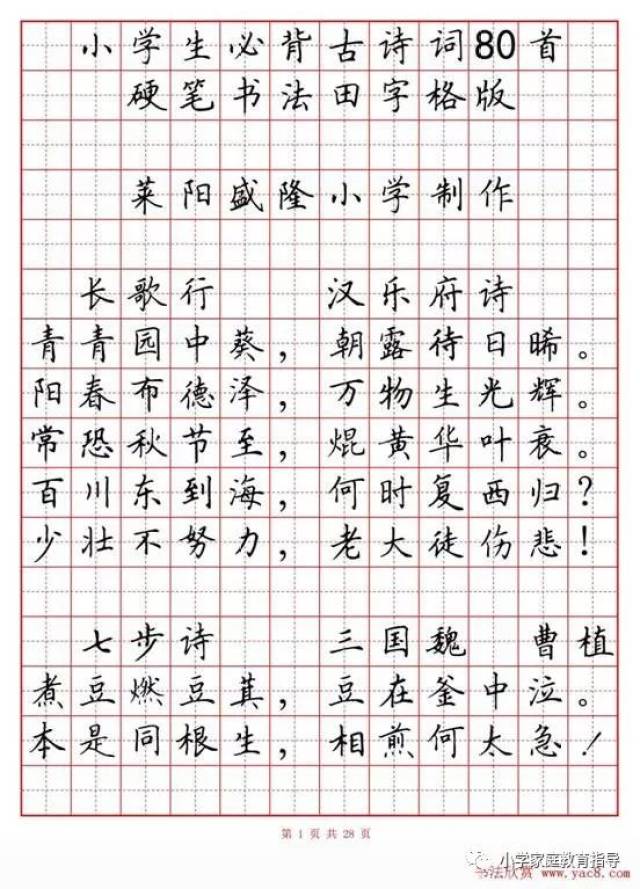 小学生必背古诗词80首
硬笔书法田字格版
莱阳盛隆小学制作
长歌行 汉乐府诗
青青园中葵，朝露待日晞。
阳春布德泽，万物生光辉。
常恐秋节至，焜黄华叶衰。
百川东到海，何时复西归？
少壮不努力，老大徒伤悲！
七步诗 三国魏 曹植
煮豆燃豆萁，豆在釜中泣。
本是同根生，相煎何太急！
第 1 页 共 28 页
小学家庭教育指导
书法欣赏 www.yac8.com